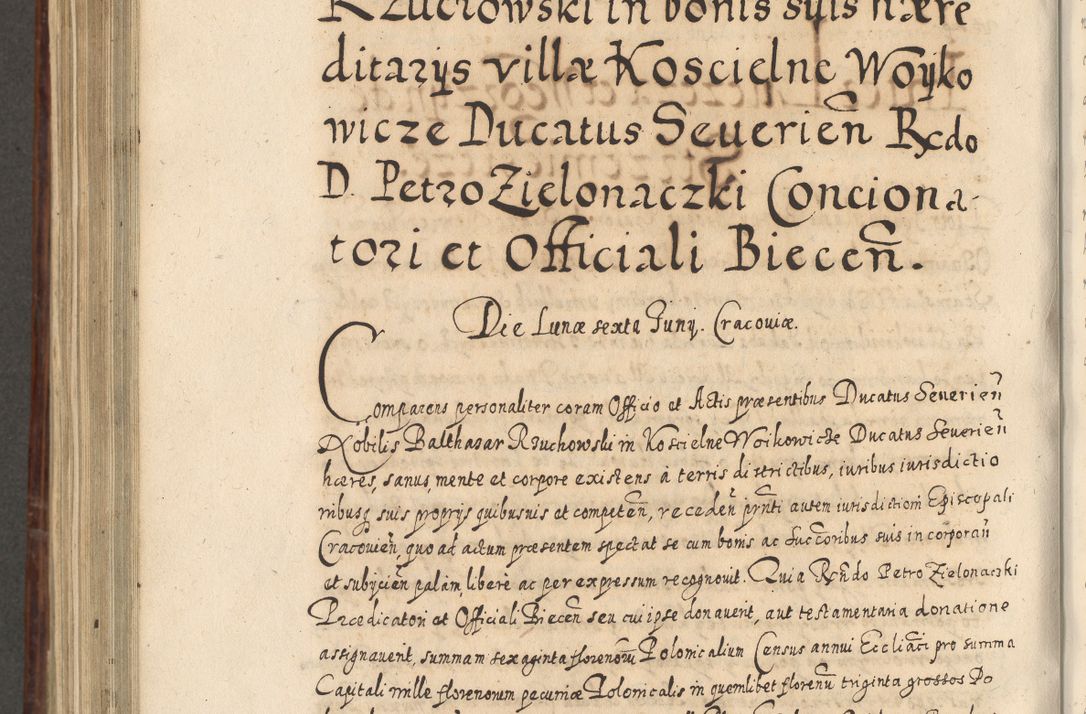 Rzuchowski in bonis suis hære
ditarijs villæ Koscielne Woyko
wicze Ducatus Seuerien̄ Redo
D. Petro Zielonaczki Conciona-
tori et Officiali Biecen̄.
Die Lunæ sexta Junij. Cracoviæ.
Comparens personaliter coram Officio et Actis præsentibus Ducatus Seuerien̄
Nobilis Balthasar Rzuchowski in Koscielne Woikowicze Ducatus Seuerien̄
hæres, sanus, mente et corpore existens à terris districtibus, iuribus iurisdictio
nibusq suis proprijs quibusuis et competen̄, receden̄ pn̄ti autem iurisdictioni Episcopali
Cracouien̄, quo ad actum præsentem spectat se cum bonis ac succoribus suis incorporan̄
et subijcien̄ palam, libere ac per expressum recognouit. Quia Rn̄do Petro Zielonaczki
Prædicatori et Officiali Biecen̄ seu cui ipse donauerit, aut testamentaria donatione
assignauerit, summam sexaginta florenorū Polonicalium Census annui Eccliāci pro summa
Capitali mille florenorum pecuniæ Polonicalis in quemlibet florenū triginta grossos Po